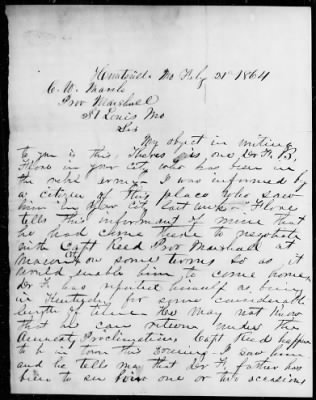 Huntsville Mo Feby 21st 1864
C. W. Marsh
Prov Marshall
St Louis Mo
Sir
My object in writing
to you is this, There is one Dr F. B.
in your city who has been in
the rebel army. I was informed by
a citizen of this place who saw
him in your city last week
tells this informant of mine that
he had come there to negotiate
with Capt Reed Prov Marshall at
Macon on some terms so as it
would enable him to come home,
Dr F. has reported himself as being
in Kentucky for some considerable
length of time. He may not know
that he can return under the
Amnesty Proclimation. Capt Reed happens
to be in town this evening. I saw him
and he tells me that Dr F. father has
been to see him one or two occasions